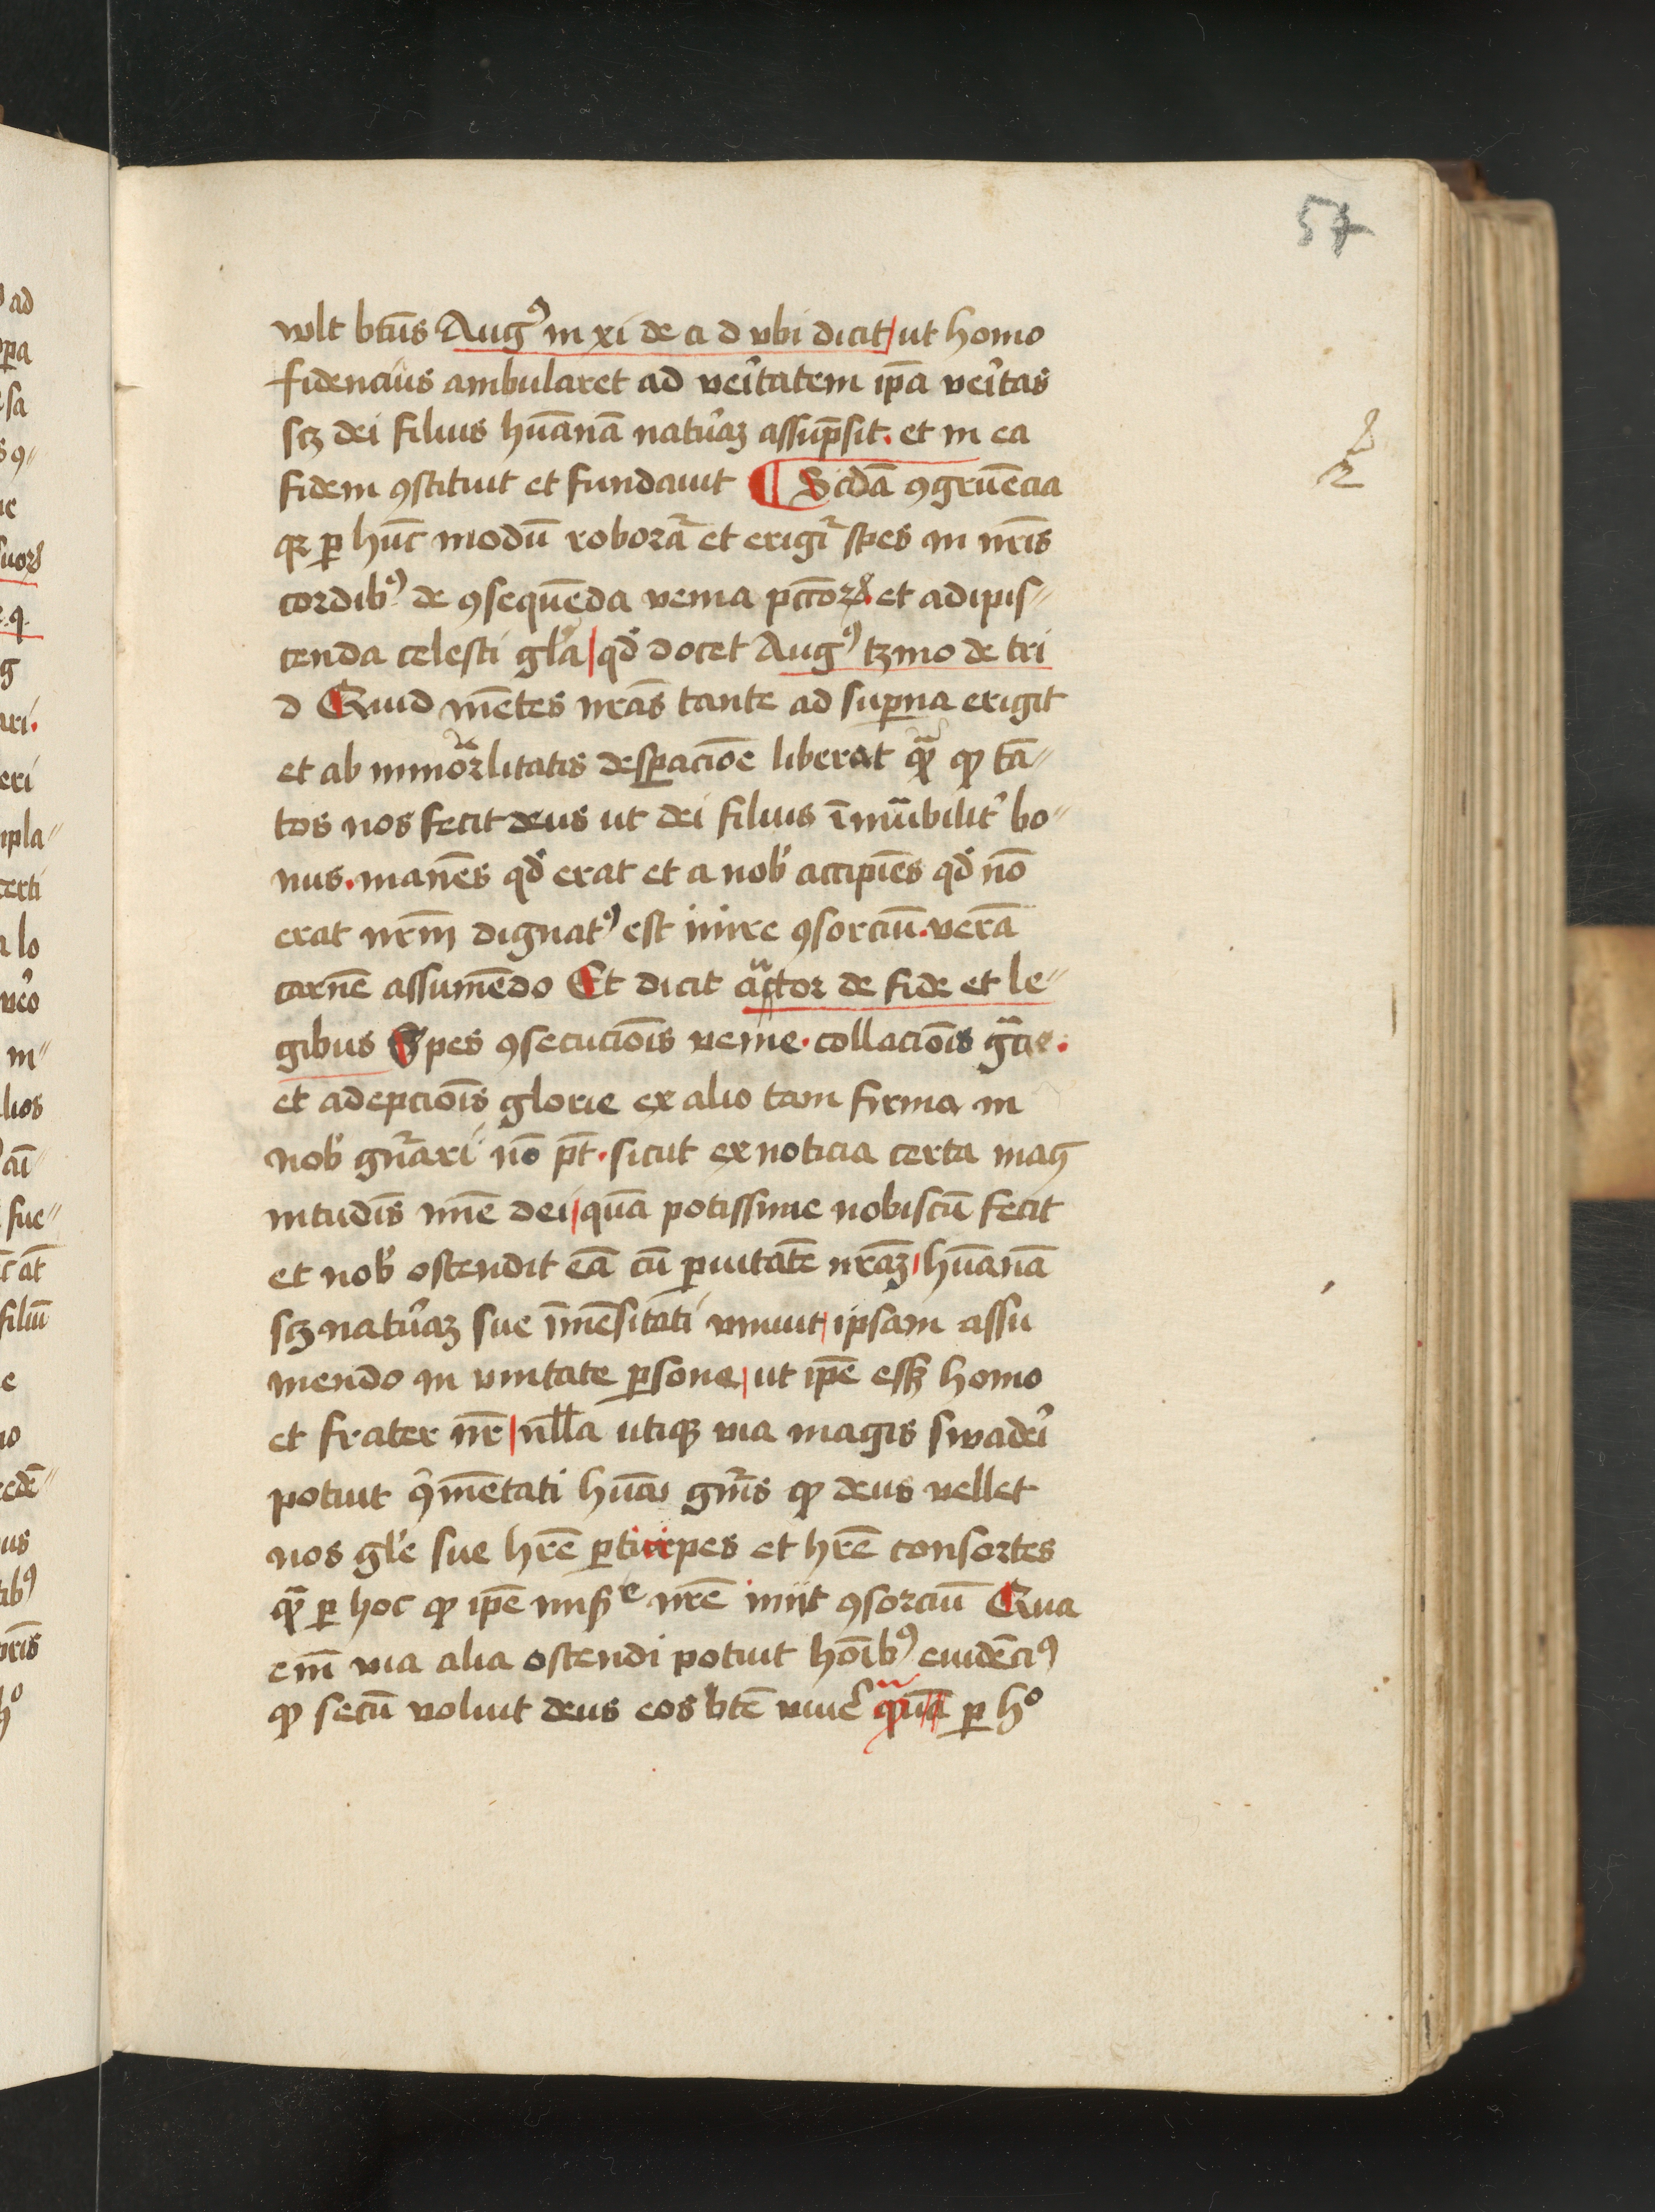 57
wlt btūs Augꝰ in xi de ci d vbi dicit ut homo
fidencius ambularet ad veitatem ip̄a veitas
scꝫ dei filius hūanā natuaꝫ assūp̄sit. et in ea
fidem ꝯstituit et fundauit ¶ Scdā ꝯgruēcia
qꝛ ꝑ hūc modū roborat᷑ et erigit᷑ spes in nr̄is
cordibꝰ de ꝯsequēda venia pctōꝝ et adipis〃
cenda celesti gl̄a qd̓ docet Augꝰ tꝫmo de tri
d Quid mētes nr̄as tante ad suꝑna erigit
et ab inmortalitatis desꝑacione liberat qͣꝫ ꝙ tā〃
tos nos fecit deus ut dei filius īmutabilit̓ bo〃
nus. manēs qd̓ erat et a nob̓ accipiēs qd̓ nō
erat nr̄m dignatꝰ est inire ꝯsorciū. verā
carnē assumēdo Et dicit auctor de fide et le〃
gibus Spes ꝯsecucionis venie. collacionis gͣcie.
et adepcionis glorie ex alio tam firma in
nob̓ gn̄ari nō pt̄. sicut ex noticia certa mag
nitudīs mīe dei quā potissime nobiscū fecit
et nob̓ ostendit eā cū ꝑuitatē nr̄aꝫ hūanā
scꝫ natuaꝫ sue īmēsitati vniuit ipsam assu
mendo in vnitate ꝑsone ut ip̄e essꝫ homo
et frater nr̄ nlla utiqꝫ via magis swaderi
potuit ꝯmētati hūani gn̄is ꝙ deus vellet
nos gl̓e sue hr̄e ꝑticipes et hr̄e consortes
qͣꝫ ꝑ hoc ꝙ ip̄e miẜe nr̄e iniit ꝯsorciū Qua
em̄ via alia ostendi potuit hoībꝰ euidēciꝰ
ꝙ secū voluit deus eos btē viue᷑ qͣꝫ ꝑ hͦ